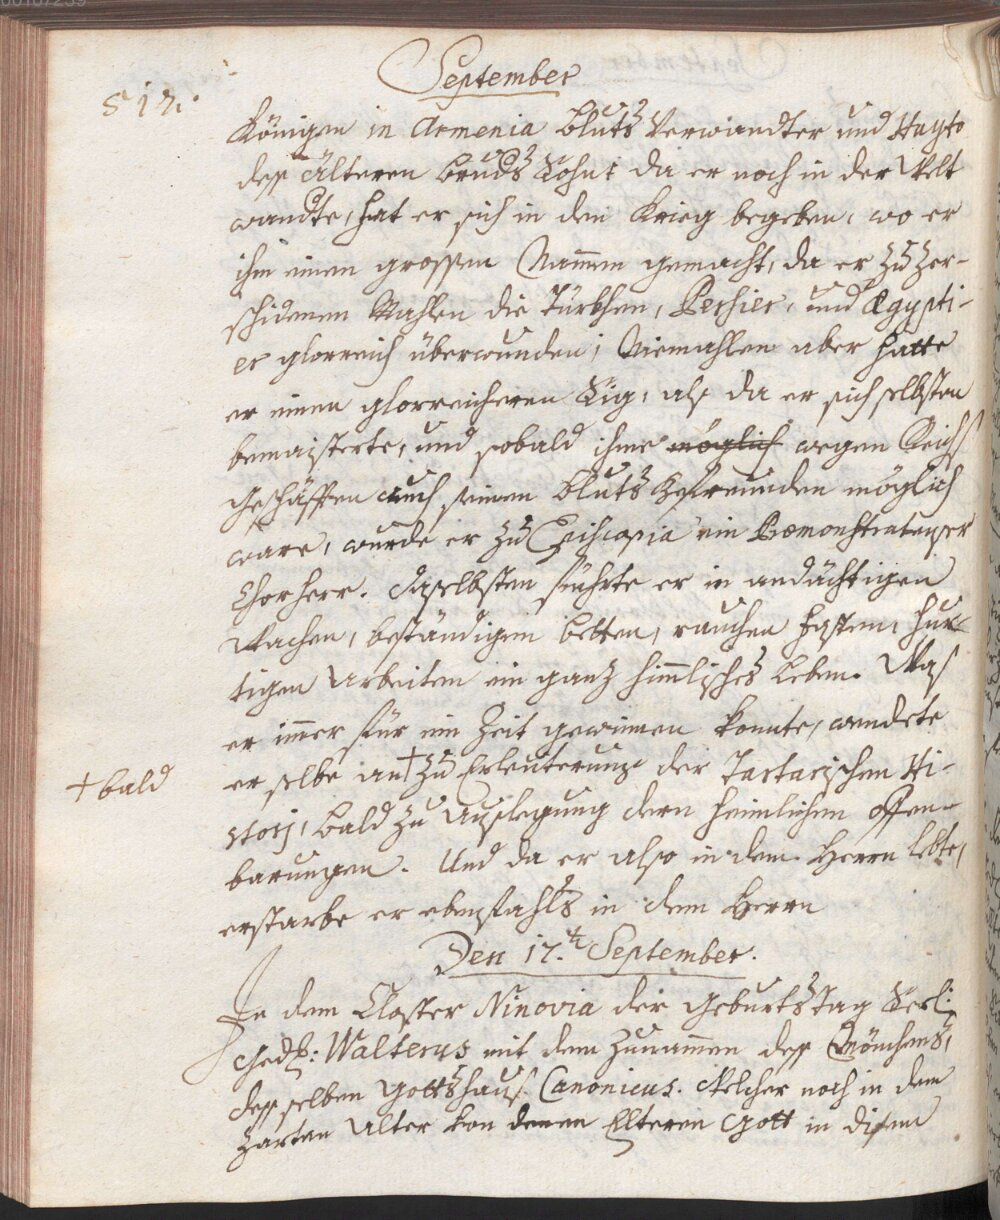 September
S 17.
Königen in Armenia Bluts Verwandter und Hayto
deß Älteren Bruds Sohn: da er noch in der Welt
wandte, hat er sich in den Krieg begeben, wo er
ihm einen grossen Nammen gemacht, da er zu zer-
schidenen Mahlen die Türkhen, Persier, und Ægypti-
er glorreich überwunden; Niemahlen aber hatte
er einen glorreicheren Sig, als da er sich selbsten
bemaisterte, und sobald ihme möglich wegen Reichs
Geschäfften auch seinen Bluts Befreunden möglich
ware, wurde er zu Episcopia ein Præmonstratenser
Chorherr. Daselbsten führte er in andächtigen
Wachen, beständigem betten, rauchen fasten, hur-
tigen Arbeiten ein ganz himmlisches Leben. Was
er immer für ein Zeit gewinnen konnte, wendete
er selbe an † zu Erleuterung der Tartarischen Hi-
† bald
storj, bald zu Auslegung deren heimlichen offen-
barungen. Und da er also in dem Herrn lebte,
erstarbe er ebenfahls in dem Herrn
Den 17.t September.
In dem Closter Ninovia der Geburts Tag Seel:
Ged: Walterus mit dem Zunammen deß Mönchens,
desselben Gottshaus Canonicus. Welcher noch in dem
zarten Alter von denen Elteren Gott in disem